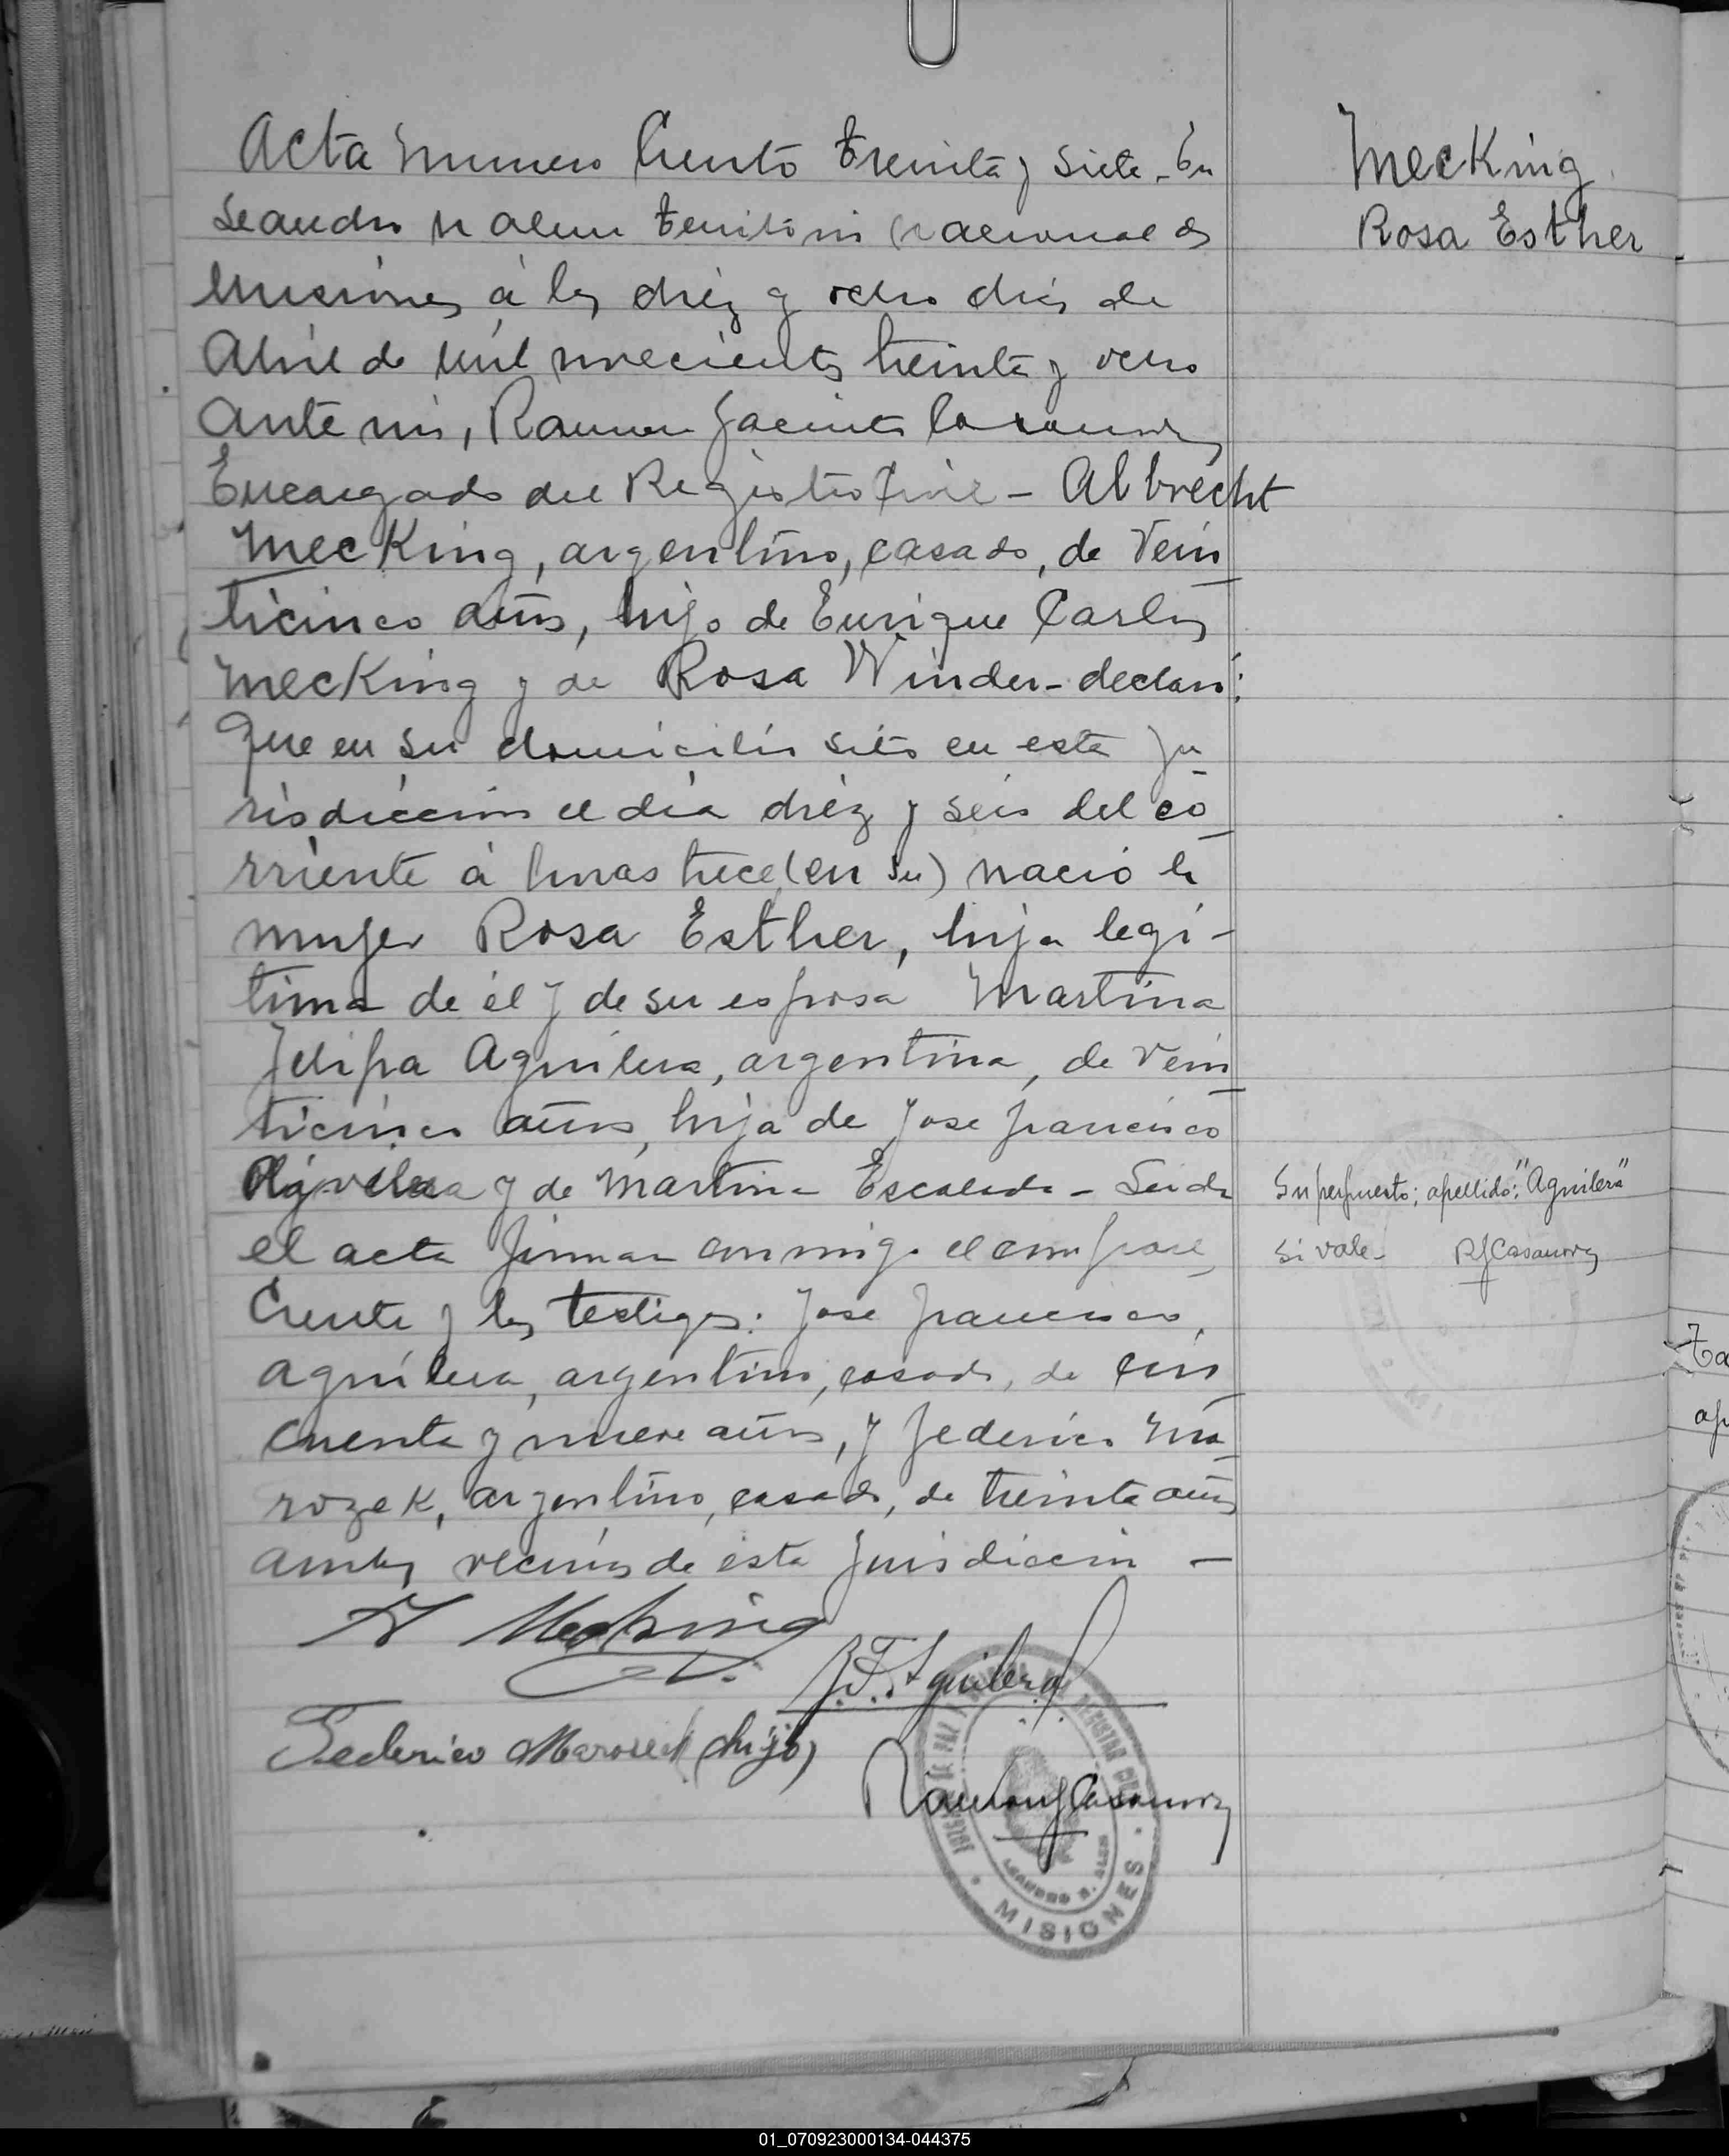 Acta numero Ciento treinta y siete - En
Leandro N Alem territorio nacional de
Misiones á los diéz y ocho dias de
Abril de mil novecientos treinta y ocho
Ante mi, Ramon Jacinto Casanova
Encargado del Registro Civil - Albrecht
MecKing, argentino, casado, de vein
ticinco años, hijo de Enrique Carlos
MecKing y de Rosa Winder - declaró:
Que en su domicilio sito en esta ju
risdiccion el dia diéz y seis del co
rriente á horas trece (en su) nació la
mujer Rosa Esther, hija legi-
tima de él y de su esposa Martina
Felipa Aguilera, argentina, de vein
ticinco años, hija de Jose Francisco
Aguilera y de Martina Escalada - Leida
el acta firman conmigo el compare
ciente y los testigos: Jose Francisco
Aguilera, argentino, casado, de cin
cuenta y nueve años, y Federico Ma
rozek, argentino, casado, de treinta años
ambos vecinos de esta jurisdiccion -
A MecKing
J.F. Aguilera
Federico Marozek (hijo)
Ramon J Casanova
MecKing
Rosa Esther
Superpuesto; apellido: "Aguilera"
Si vale - RJCasanova
JUZGADO DE PAZ REGISTRO CIVIL
LEANDRO N. ALEM
MISIONES
01_070923000134-044375